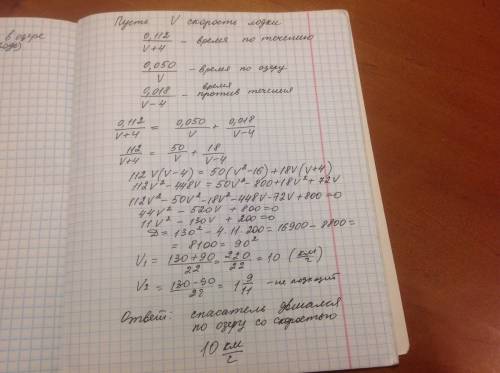 в озере
Пусть V скорость лодки
0,112/(V+4) - время по течению
0,050/V - время по озеру
0,018/(V-4) - время против течения
0,112/(V+4) = 0,050/V + 0,018/(V-4)
112/(V+4) = 50/V + 18/(V-4)
112V(V-4) = 50(V²-16)+18V(V+4)
112V²-448V = 50V²-800+18V²+72V
112V²-50V²-18V²-448V-72V+800=0
44V²-520V+800=0
11V²-130V+200=0
D=130²-4·11·200=16900-8800=
=8100=90²
V₁=(130+90)/22=220/22=10 (км/ч)
V₂=(130-90)/22=1 9/11 - не подходит
Ответ: спасатель двигался
по озеру со скоростью
10 км/ч